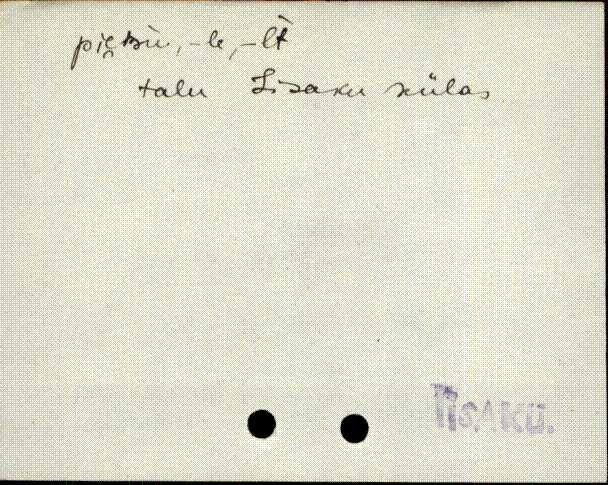 piȩksu, -le, -lt
talu Iisaku külas
IISAKU.